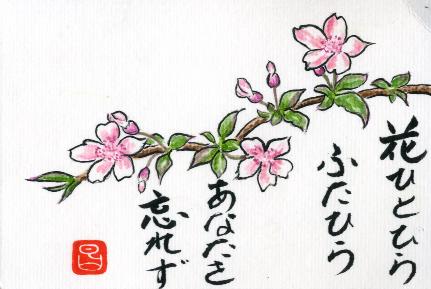 花ひとひら
ふたひら
あなたを
忘れず